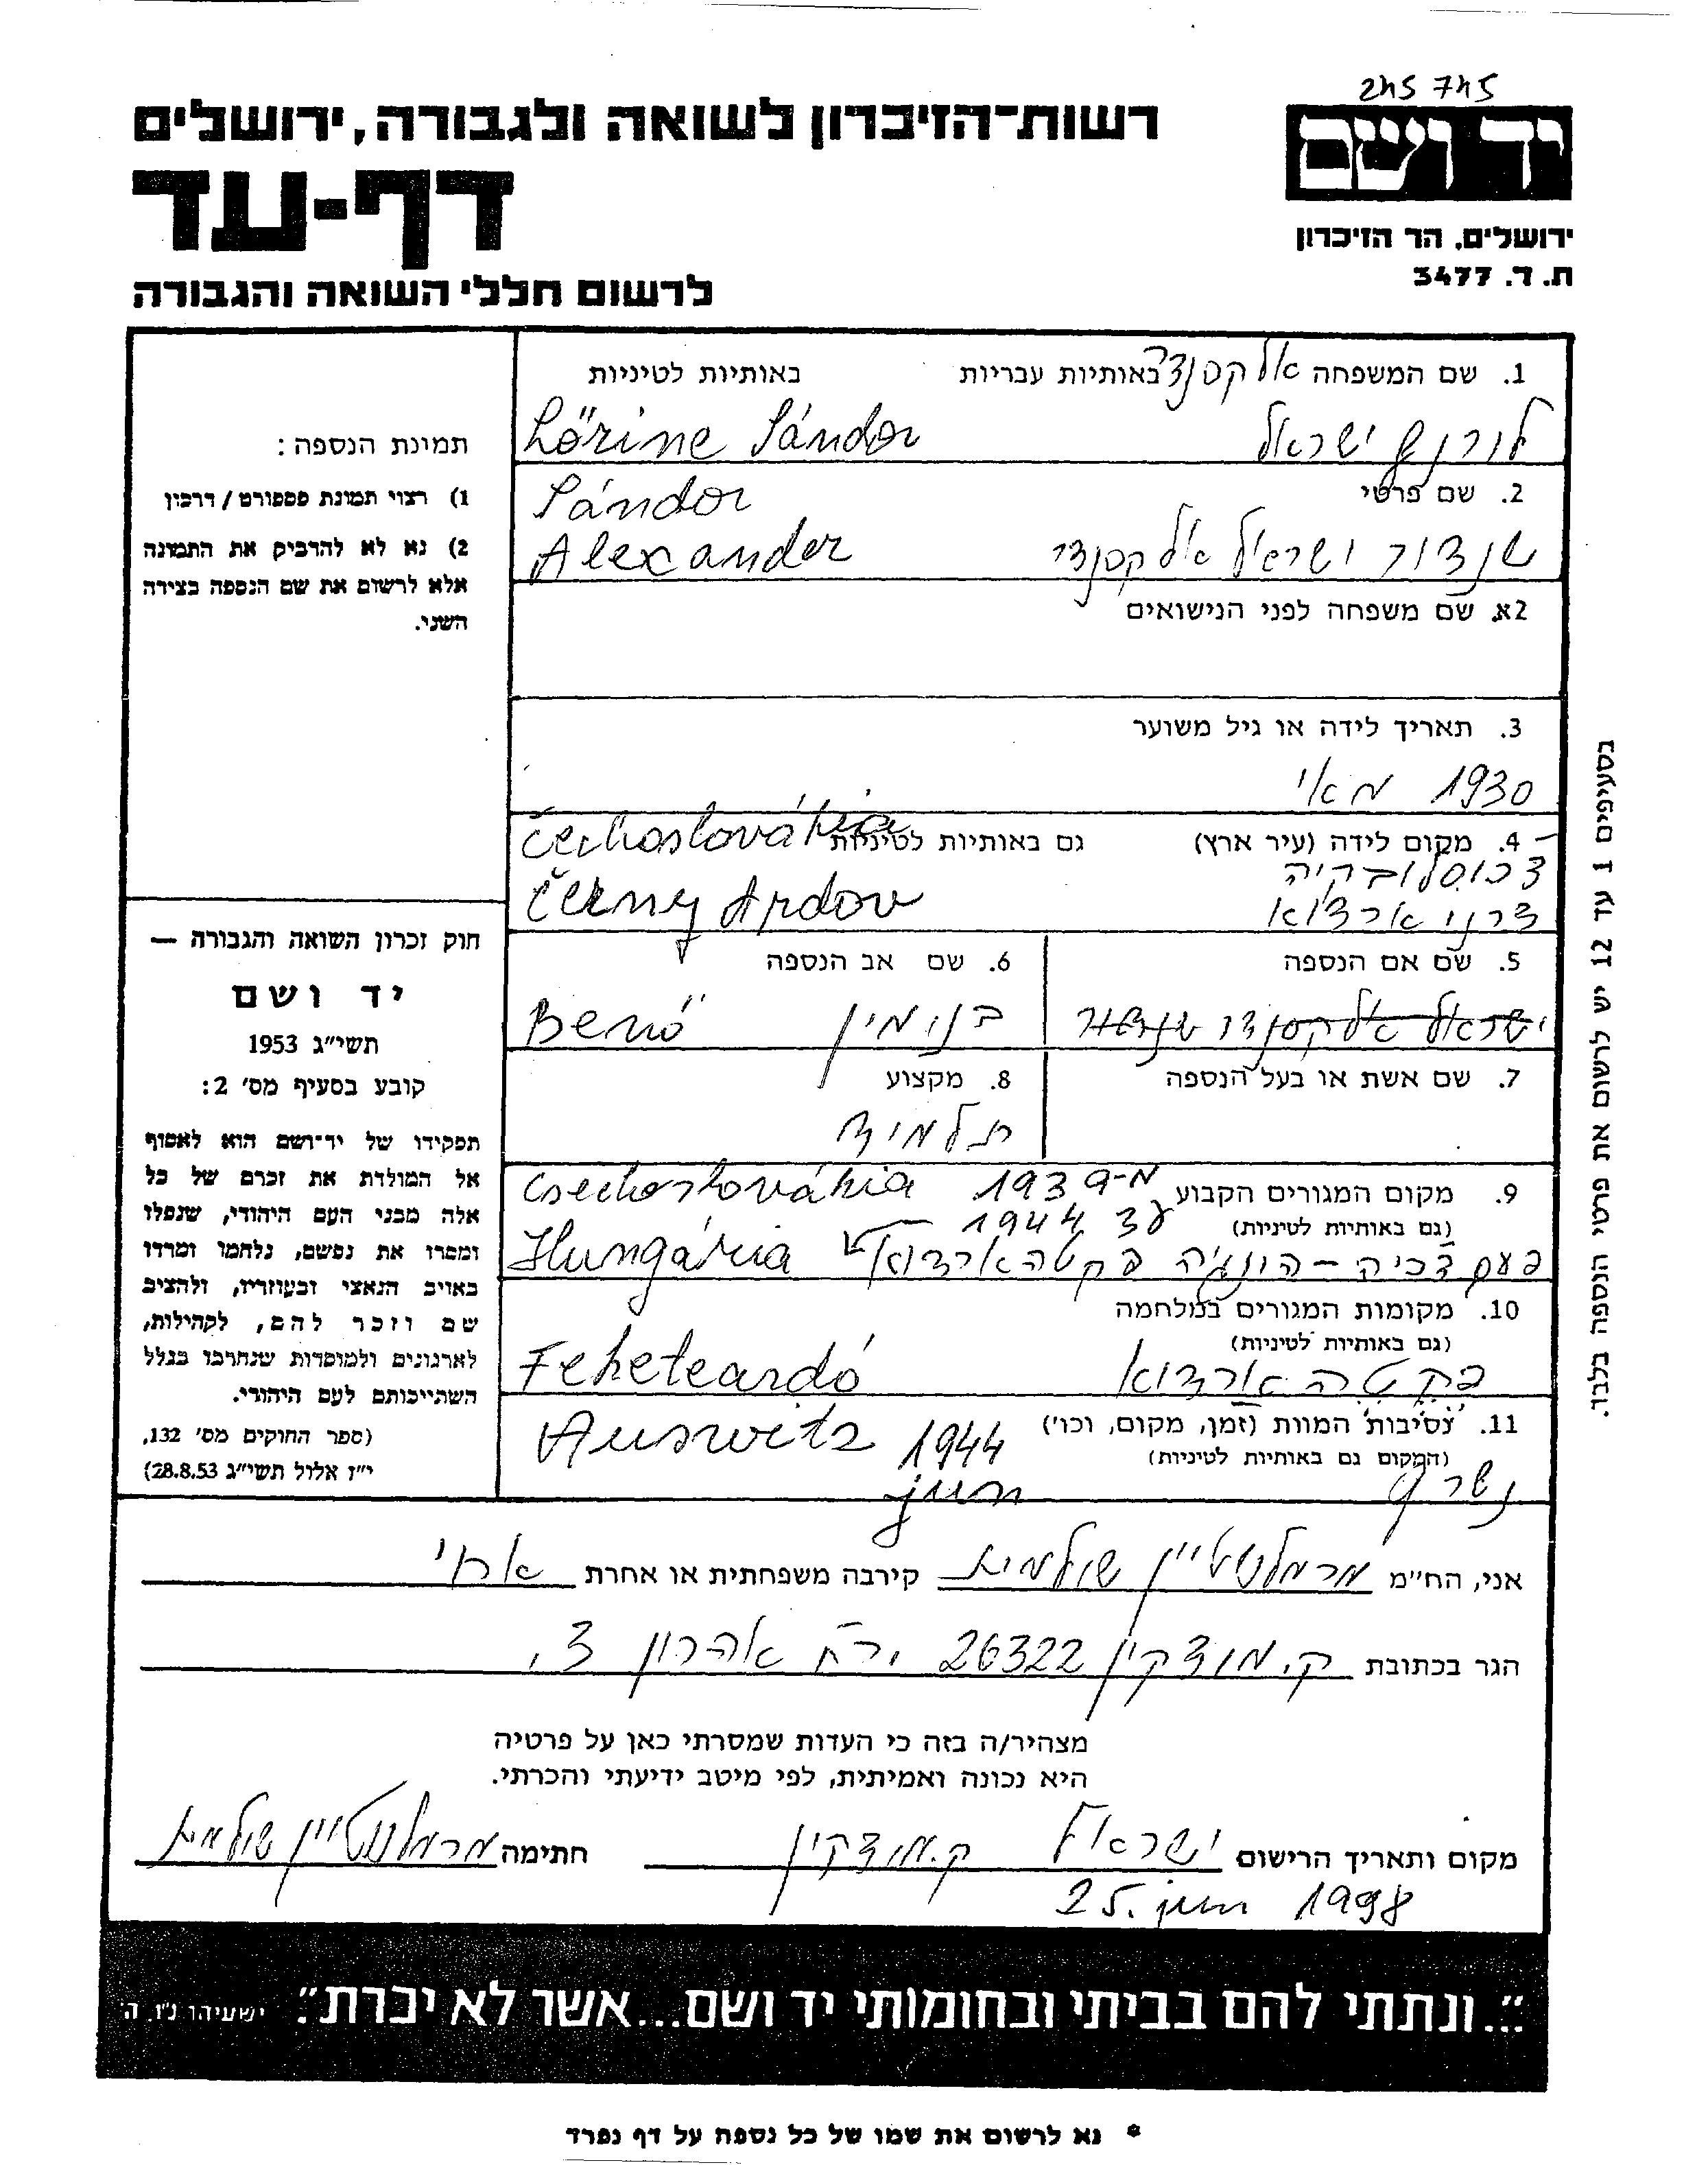 245 745
יד ושם
ירושלים, הר הזיכרון
ת. ד. 3477
רשות־הזיכרון לשואה ולגבורה, ירושלים
דף-עד
לרשום חללי השואה והגבורה
1. שם המשפחה אלקסנדר באותיות עבריות באותיות לטיניות
ישראל Lőrinc Sándor
2. שם פרטי Sándor
שנדור ישראל אלקסנדר Alexander
2א. שם משפחה לפני הנישואים
3. תאריך לידה או גיל משוער
1930 מאי
4. מקום לידה (עיר ארץ) גם באותיות לטיניות Čechoslovákia
צכוסלובקיה
צרני ארדוא Černy Ardov
5. שם אם הנספה 6. שם אב הנספה
ישראל אלקסנדר שנדור בנימין Benő
7. שם אשת או בעל הנספה 8. מקצוע
תלמיד
9. מקום המגורים הקבוע מ-1939 Csechoslovákia
(גם באותיות לטיניות) עד 1944
פעם צכיה - הונגיה פקטהארדוא Hungária
10. מקומות המגורים במלחמה
(גם באותיות לטיניות)
פקטה ארדוא Feketeardó
11. נסיבות המוות (זמן, מקום, וכו') 1944 Auswitz
(המקום גם באותיות לטיניות)
נשרף jun
תמונת הנספה:
1) רצוי תמונת פספורט / דרכון
2) נא לא להדביק את התמונה
אלא לרשום את שם הנספה בצידה
השני.
חוק זכרון השואה והגבורה —
יד ושם
תשי"ג 1953
קובע בסעיף מס' 2:
תפקידו של יד־ושם הוא לאסוף
אל המולדת את זכרם של כל
אלה מבני העם היהודי, שנפלו
ומסרו את נפשם, נלחמו ומרדו
באויב הנאצי ובעוזריו, ולהציב
שם וזכר להם, לקהילות,
לארגונים ולמוסדות שנחרבו בגלל
השתייכותם לעם היהודי.
(ספר החוקים מס' 132,
י"ז אלול תשי"ג 28.8.53)
בסעיפים 1 עד 12 יש לרשום את פרטי הנספה בלבד.
אני, הח"מ מרמלשטיין שולמית קירבה משפחתית או אחרת אחי
הגר בכתובת ק. מוצקין 26322 אהרון 3.
מצהיר/ה בזה כי העדות שמסרתי כאן על פרטיה
היא נכונה ואמיתית, לפי מיטב ידיעתי והכרתי.
מקום ותאריך הרישום ישראל ק. מוצקין חתימה מרמלשטיין שולמית
25. jun 1998
"...ונתתי להם בביתי ובחומותי יד ושם...אשר לא יכרת". ישעיהו נ"ו, ה'
* נא לרשום את שמו של כל נספה על דף נפרד